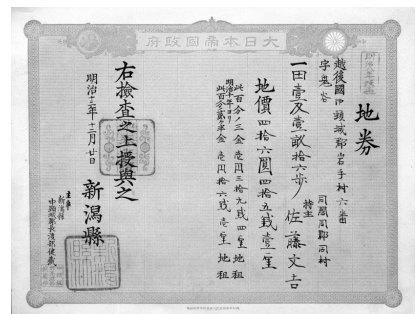 大日本帝國政府
地券
越後國中頸城郡岩手村六番
字鬼谷
一田壹反壹畝拾六歩
同國同郡同村
持主 佐藤丈吉
地價四拾六圓四拾五銭壹厘
此百分ノ三金 壱円三拾九銭四厘 地租
明治十年ヨリ
此百分ノ貳ヶ半金 壱円拾六銭壱厘 地租
右檢査之上授與之
明治十三年十二月廿日
新潟縣
主事
新潟縣
中頸城郡長